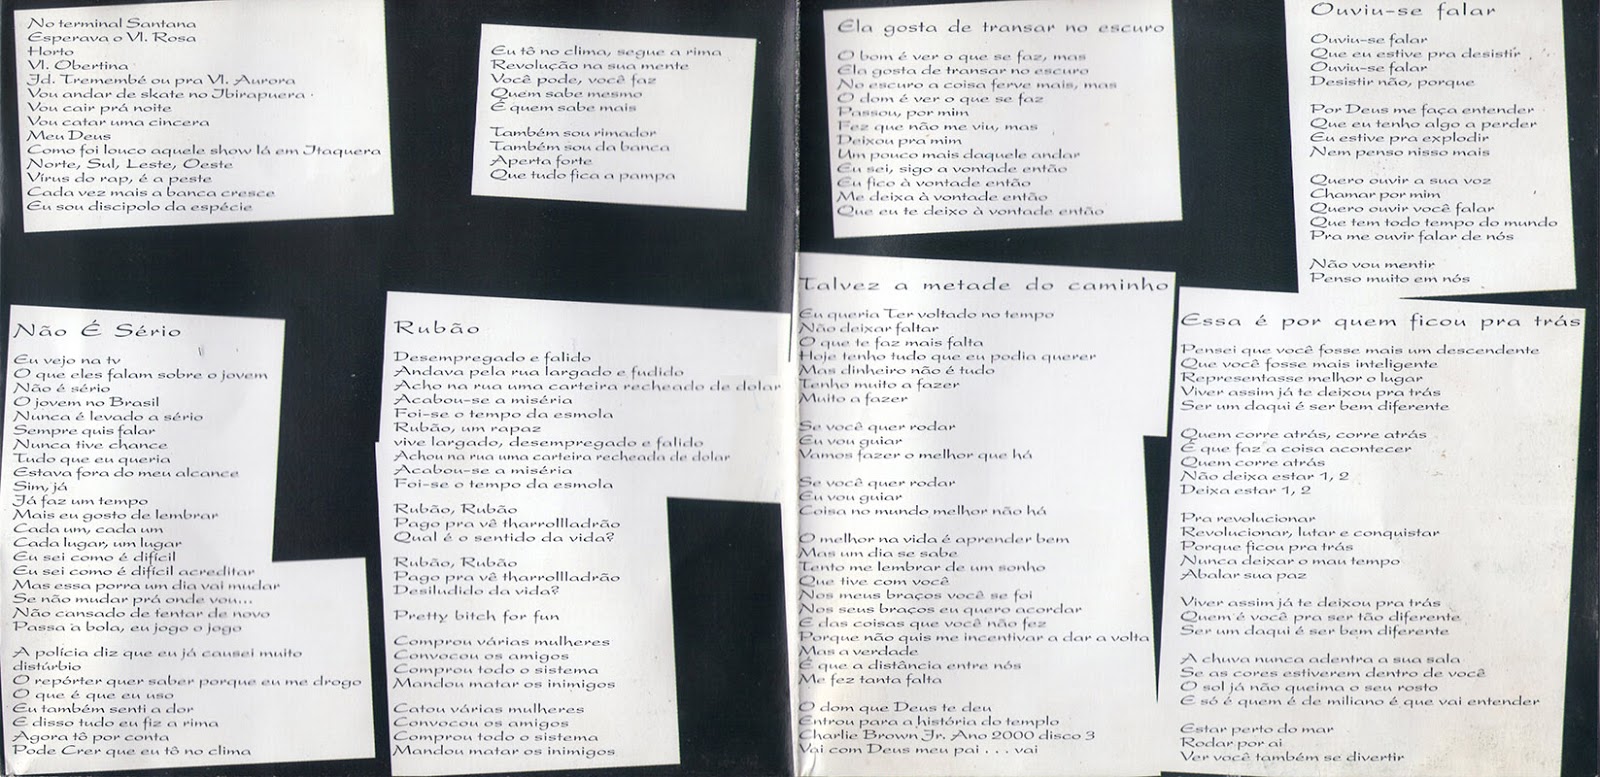 No terminal Santana
Esperava o Vl. Rosa
Horto
Vl. Obertina
Jd. Tremembé ou pra Vl. Aurora
Vou andar de skate no Ibirapuera
Vou cair prá noite
Vou catar uma cincera
Meu Deus
Como foi louco aquele show lá em Itaquera
Norte, Sul, Leste, Oeste
Vírus do rap, é a peste
Cada vez mais a banca cresce
Eu sou discipolo da espécie
Eu tô no clima, segue a rima
Revolução na sua mente
Você pode, você faz
Quem sabe mesmo
É quem sabe mais
Também sou rimador
Também sou da banca
Aperta forte
Que tudo fica a pampa
Não É Sério
Eu vejo na tv
O que eles falam sobre o jovem
Não é sério
O jovem no Brasil
Nunca é levado a sério
Sempre quis falar
Nunca tive chance
Tudo que eu queria
Estava fora do meu alcance
Sim, já
Já faz um tempo
Mais eu gosto de lembrar
Cada um, cada um
Cada lugar, um lugar
Eu sei como é difícil
Eu sei como é difícil acreditar
Mas essa porra um dia vai mudar
Se não mudar prá onde vou...
Não cansado de tentar de novo
Passa a bola, eu jogo o jogo
A polícia diz que eu já causei muito
distúrbio
O repórter quer saber porque eu me drogo
O que é que eu uso
Eu também senti a dor
E disso tudo eu fiz a rima
Agora tô por conta
Pode Crer que eu tô no clima
Rubão
Desempregado e falido
Andava pela rua largado e fudido
Acho na rua uma carteira recheado de dolar
Acabou-se a miséria
Foi-se o tempo da esmola
Rubão, um rapaz
vive largado, desempregado e falido
Achou na rua uma carteira recheada de dolar
Acabou-se a miséria
Foi-se o tempo da esmola
Rubão, Rubão
Pago pra vê tharrollladrão
Qual é o sentido da vida?
Rubão, Rubão
Pago pra vê tharrollladrão
Desiludido da vida?
Pretty bitch for fun
Comprou várias mulheres
Convocou os amigos
Comprou todo o sistema
Mandou matar os inimigos
Catou várias mulheres
Convocou os amigos
Comprou todo o sistema
Mandou matar os inimigos
Ela gosta de transar no escuro
O bom é ver o que se faz, mas
Ela gosta de transar no escuro
No escuro a coisa ferve mais, mas
O dom é ver o que se faz
Passou, por mim
Fez que não me viu, mas
Deixou pra mim
Um pouco mais daquele andar
Eu sei, sigo a vontade então
Eu fico à vontade então
Me deixa à vontade então
Que eu te deixo à vontade então
Talvez a metade do caminho
Eu queria Ter voltado no tempo
Não deixar faltar
O que te faz mais falta
Hoje tenho tudo que eu podia querer
Mas dinheiro não é tudo
Tenho muito a fazer
Muito a fazer
Se você quer rodar
Eu vou guiar
Vamos fazer o melhor que há
Se você quer rodar
Eu vou guiar
Coisa no mundo melhor não há
O melhor na vida é aprender bem
Mas um dia se sabe
Tento me lembrar de um sonho
Que tive com você
Nos meus braços você se foi
Nos seus braços eu quero acordar
E das coisas que você não fez
Porque não quis me incentivar a dar a volta
Mas a verdade
É que a distância entre nós
Me fez tanta falta
O dom que Deus te deu
Entrou para a história do templo
Charlie Brown Jr. Ano 2000 disco 3
Vai com Deus meu pai . . . vai
Ouviu-se falar
Ouviu-se falar
Que eu estive pra desistir
Ouviu-se falar
Desistir não, porque
Por Deus me faça entender
Que eu tenho algo a perder
Eu estive pra explodir
Nem penso nisso mais
Quero ouvir a sua voz
Chamar por mim
Quero ouvir você falar
Que tem todo tempo do mundo
Pra me ouvir falar de nós
Não vou mentir
Penso muito em nós
Essa é por quem ficou pra trás
Pensei que você fosse mais um descendente
Que você fosse mais inteligente
Representasse melhor o lugar
Viver assim já te deixou pra trás
Ser um daqui é ser bem diferente
Quem corre atrás, corre atrás
É que faz a coisa acontecer
Quem corre atrás
Não deixa estar 1, 2
Deixa estar 1, 2
Pra revolucionar
Revolucionar, lutar e conquistar
Porque ficou pra trás
Nunca deixar o mau tempo
Abalar sua paz
Viver assim já te deixou pra trás
Quem é você pra ser tão diferente
Ser um daqui é ser bem diferente
A chuva nunca adentra a sua sala
Se as cores estiverem dentro de você
O sol já não queima o seu rosto
E só é quem é de miliano é que vai entender
Estar perto do mar
Rodar por ai
Ver você também se divertir